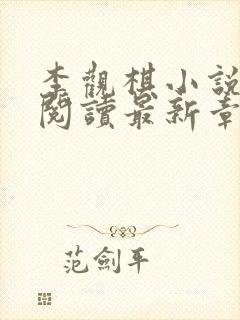 李觀棋小說
閱讀最新章
范劍平